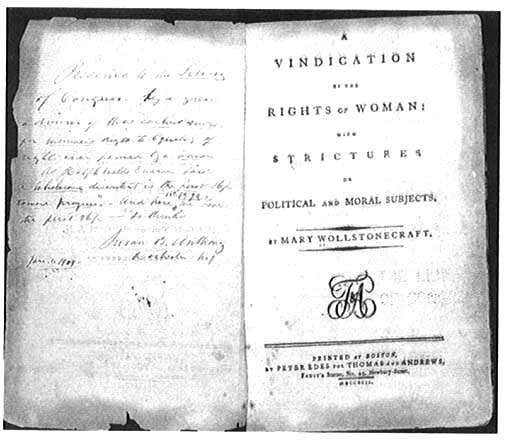 Presented to the Library
of Congress by a great
admirer of this earliest work
for woman's right to Equality of
rights ever penned by a woman
As Ralph Waldo Emerson said
A wholesome discontent is the first step
toward progress. And here in
the first step — so thinks
Susan B. Anthony
Rochester N.Y.
Jan. 1, 1904
A
VINDICATION
OF THE
RIGHTS OF WOMAN:
WITH
STRICTURES
ON
POLITICAL AND MORAL SUBJECTS,
BY MARY WOLLSTONECRAFT.
PRINTED AT BOSTON,
BY PETER EDES FOR THOMAS AND ANDREWS,
FAUST'S Statue, No. 45, Newbury-Street,
MDCCXCII.